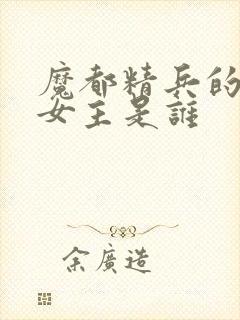 魔都精兵的
女主是誰
余廣造